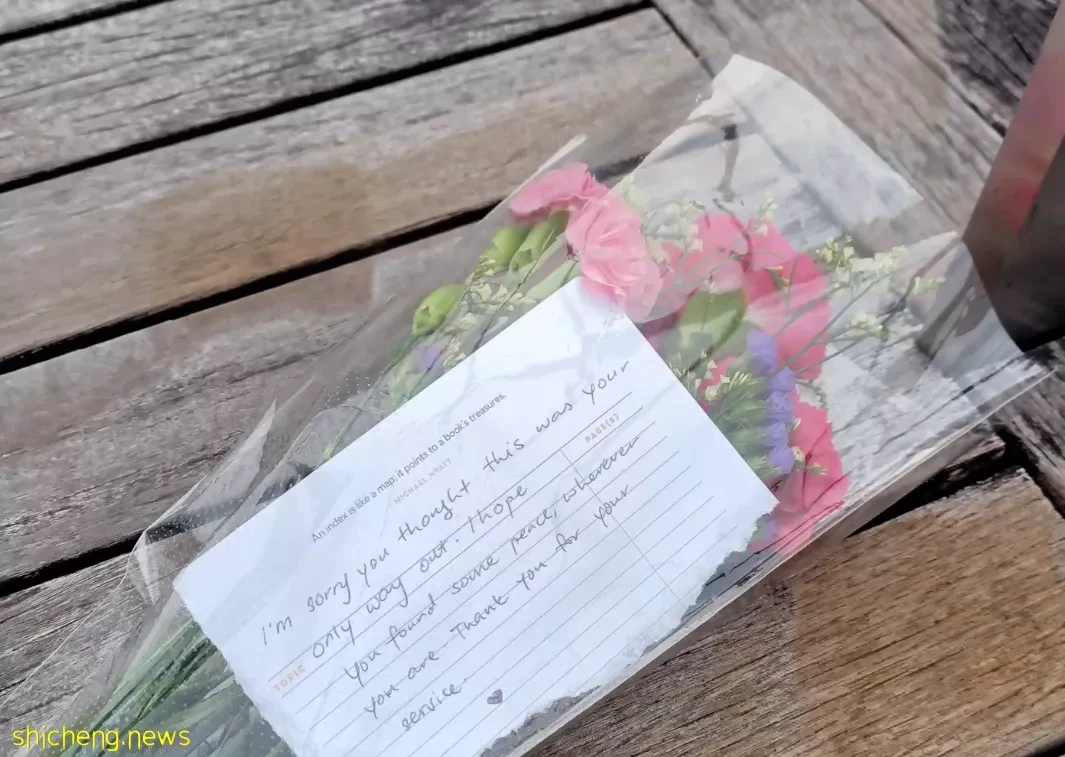 An index is like a map: it points to a book's treasures.
MICHAEL HYATT
I'm sorry you thought this was your
TOPIC
PAGE(S)
only way out. I hope
you found some peace, wherever
you are. Thank you for your
service. ♥
shicheng.news